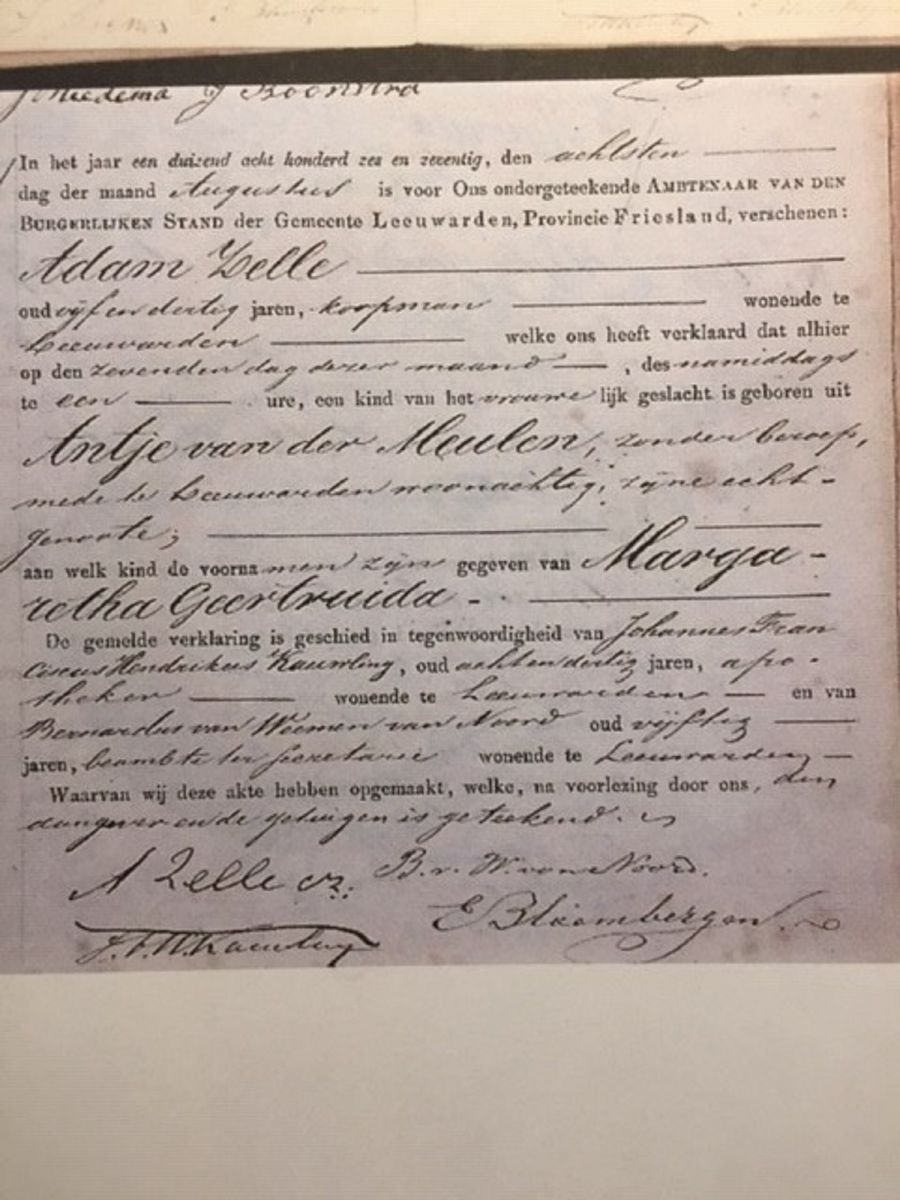 J Miedema J Boonstra
In het jaar een duizend acht honderd zes en zeventig, den achtsten
dag der maand Augustus is voor Ons ondergeteekende AMBTENAAR VAN DEN
BURGERLIJKEN STAND der Gemeente Leeuwarden, Provincie Friesland, verschenen:
Adam Zelle
oud vijf en dertig jaren, koopman wonende te
Leeuwarden welke ons heeft verklaard dat alhier
op den zevenden dag dezer maand, des namiddags
te een ure, een kind van het vrouwelijk geslacht is geboren uit
Antje van der Meulen, zonder beroep,
mede te Leeuwarden woonachtig, zijne echt-
genoote;
aan welk kind de voornamen zijn gegeven van Marga-
retha Geertruida
De gemelde verklaring is geschied in tegenwoordigheid van Johannes Fran
ciscus Hendrikus Kauwling, oud acht en dertig jaren, apo-
theker wonende te Leeuwarden en van
Bernardus van Woemen van Noord oud vijftig
jaren, beambte ter secretarie wonende te Leeuwarden
Waarvan wij deze akte hebben opgemaakt, welke, na voorlezing door ons, den
aangever en de getuigen is geteekend.
A Zelle cz. B. v. W. van Noord.
E Bloembergen
J. F. H. Kauwling